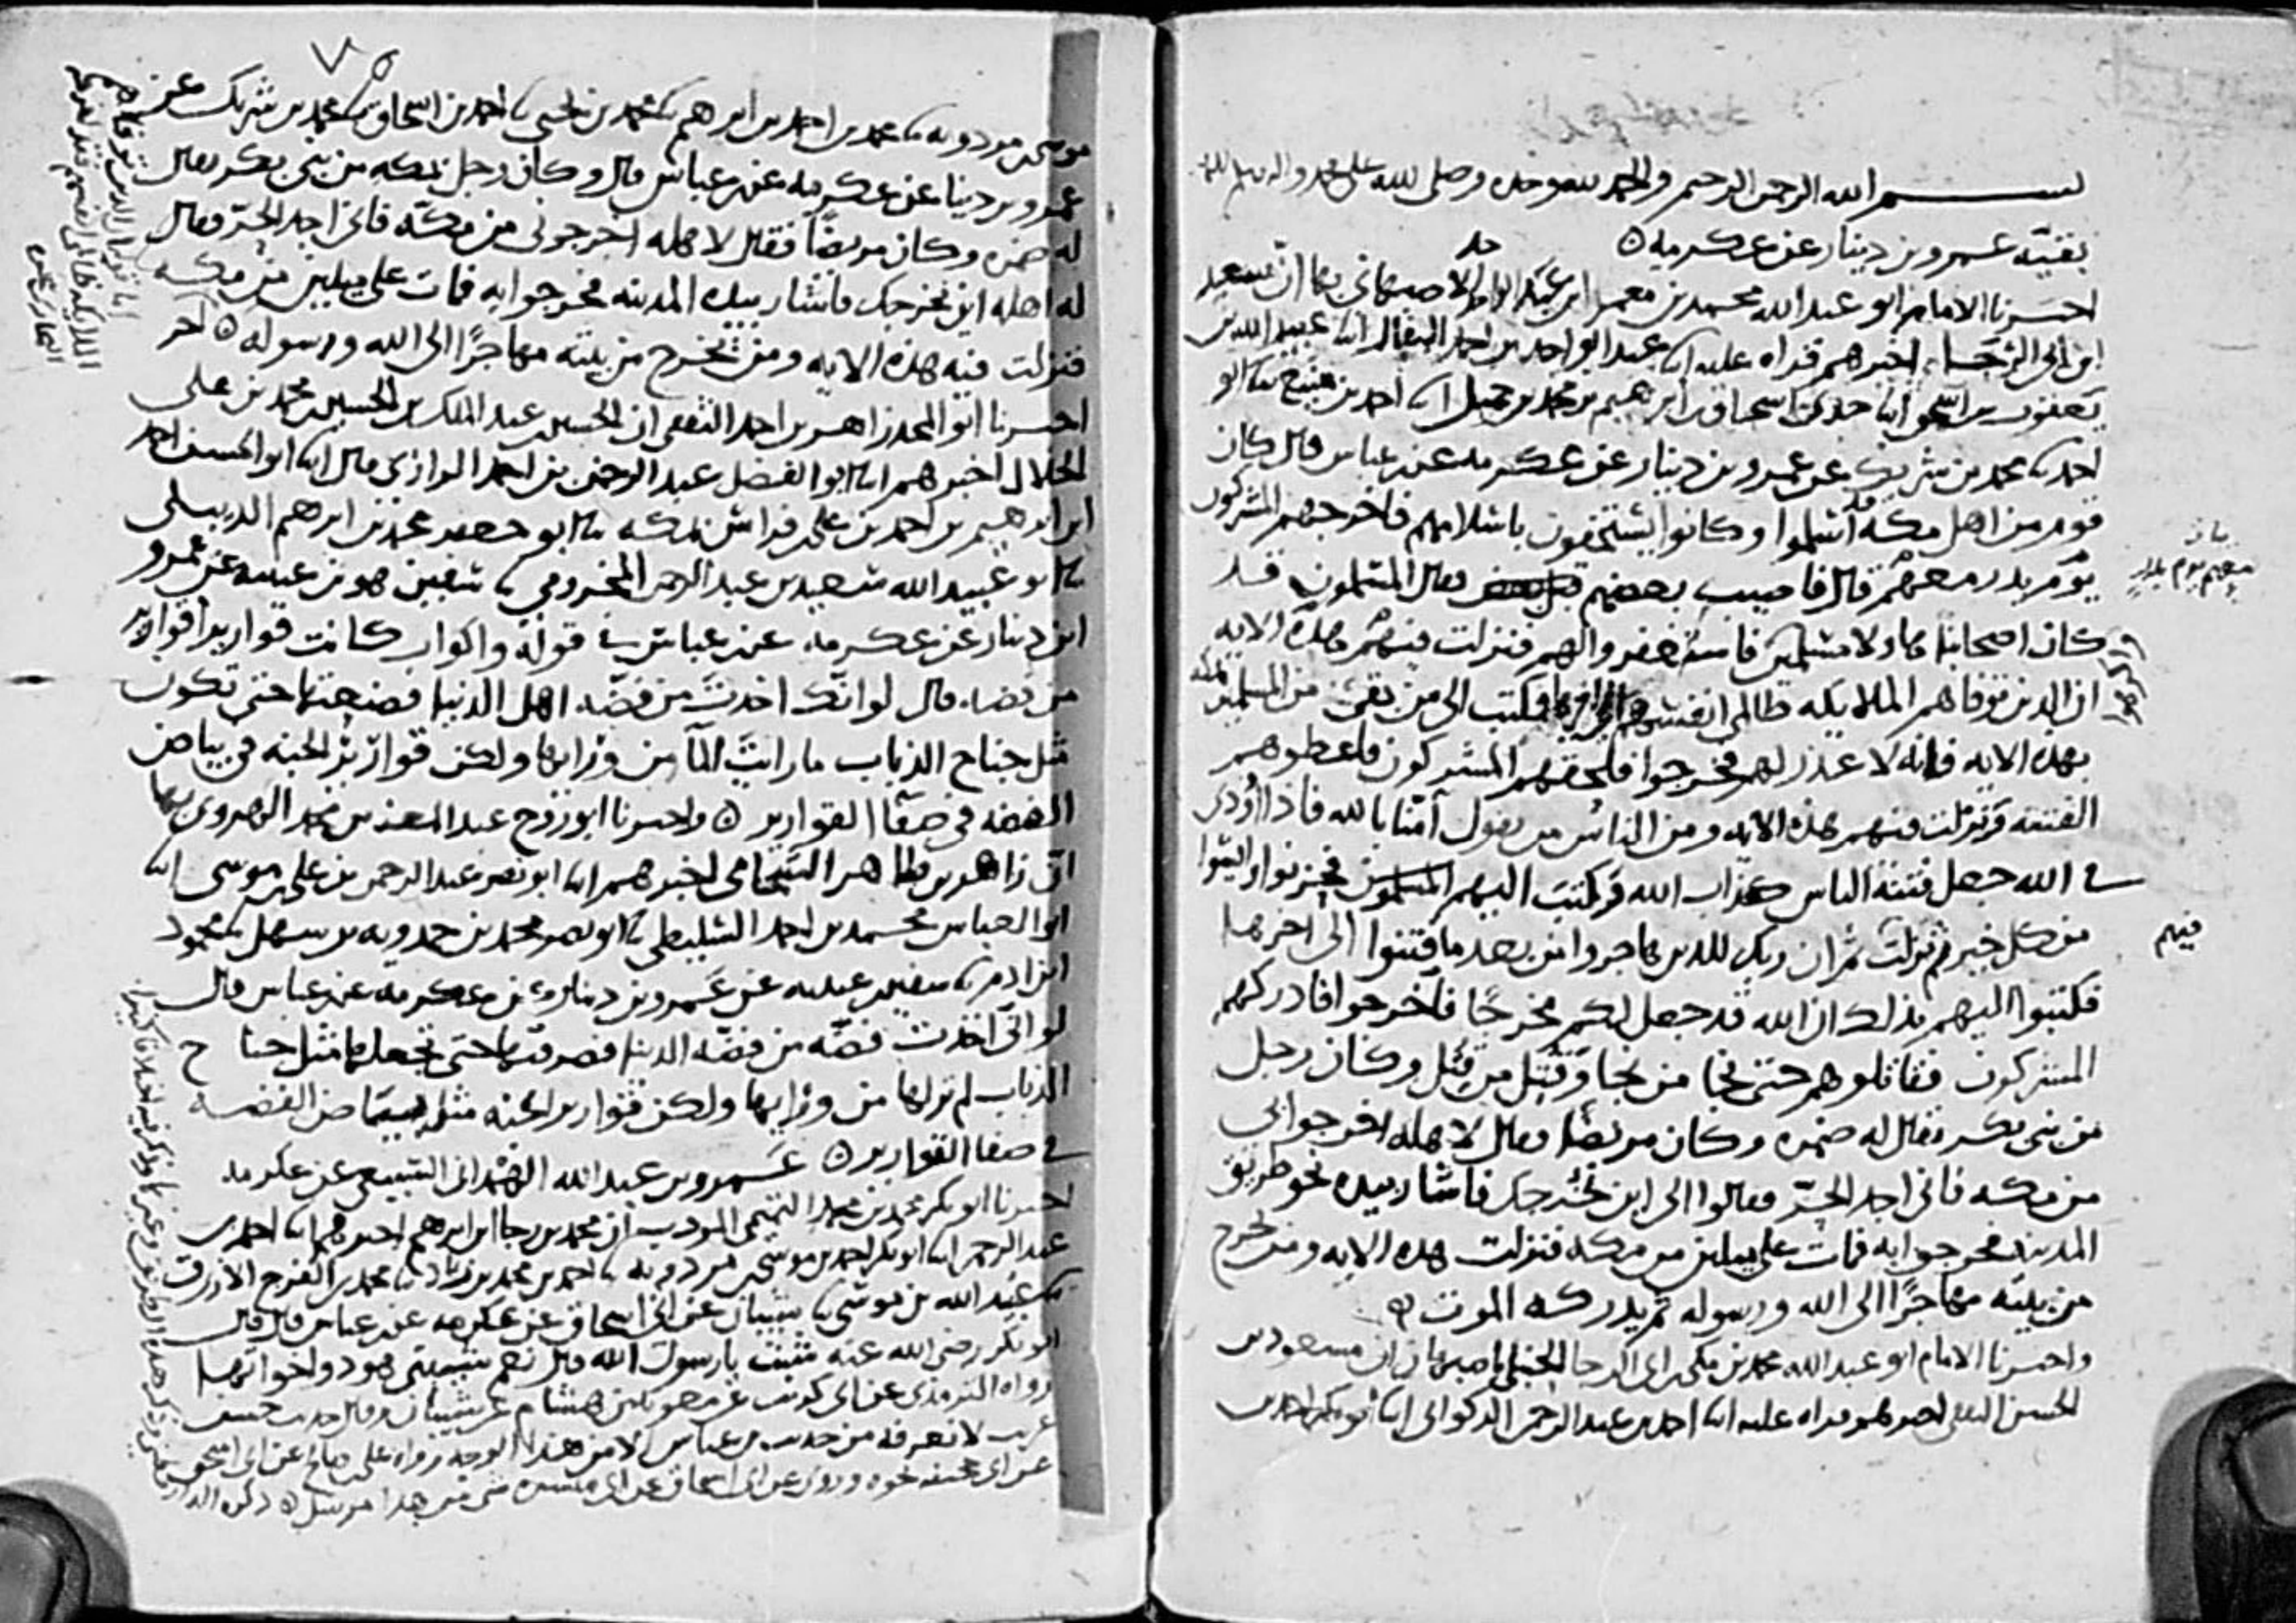 بسم الله الرحمن الرحيم والحمد لله وحده وصلى الله على محمد واله وسلم
بقية عمرو بن دينار عن عكرمه
اخبرنا الامام ابو عبد الله محمد بن معمر ابن عبد الواحد الاصبهاني بها ان سعيد
ابن ابي الرجاء اخبرهم قراه عليه ابنا عبد الواحد بن احمد البقال ابنا عبيد الله بن
يعقوب بن اسحق ابنا جدي اسحاق بن ابرهيم بن محمد بن جميل ابنا احمد بن منيع ثنا ابو
احمد ثنا محمد بن شريك عن عمرو بن دينار عن عكرمه عن ابن عباس قال كان
قوم من اهل مكه قد اسلموا وكانوا يستخفون باسلامهم فاخرجهم المشركون
يوم بدر معهم قال فاصيب بعضهم فقال المسلمون قد
كان اصحابنا هاولا مسلمين فاستغفروا لهم فنزلت فيهم هذه الايه
ان الذين توفاهم الملايكه ظالمي انفسهم فكتب الى من بقي من المسلمين بمكه
بهذه الايه فانه لا عذر لهم فخرجوا فلحقهم المشركون فاعطوهم
الفتنه فنزلت فيهم هذه الايه ومن الناس من يقول آمنا بالله فاذا اوذي
في الله جعل فتنة الناس كعذاب الله فكتب اليهم المسلمون فحزنوا وايسوا
من كل خير ثم نزلت ثم ان ربك للذين هاجروا من بعد ما فتنوا الى اخرها
فكتبوا اليهم بذلك ان الله قد جعل لكم مخرجا فاخرجوا فادركهم
المشركون فقاتلوهم حتى نجا من نجا وقتل من قتل وكان رجل
من بني بكر يقال له ضمره وكان مريضا فقال لاهله اخرجوا بي
من مكه فاني اجد الحر فقالوا الى اين نخرجك فاشار بيده نحو طريق
المدينه فخرجوا به فمات على ميلين من مكه فنزلت هذه الايه ومن يخرج
من بيته مهاجرا الى الله ورسوله ثم يدركه الموت
واخبرنا الامام ابو عبد الله محمد بن مكي بن ابي الرجا الحنبلي باصبهان ان مسعود بن
الحسن الثقفي اخبرهم قراه عليه ابنا احمد بن عبد الرحمن الذكواني ابنا ابو بكر احمد بن
معهم يوم بدر
فيهم
٧٥
موسى بن مردويه ثنا محمد بن احمد بن ابرهم ثنا محمد بن يحيى ثنا احمد بن اسحاق ثنا محمد بن شريك عن
عمرو بن دينار عن عكرمه عن ابن عباس قال وكان رجل بمكه من بني بكر يقال
له ضمره وكان مريضا فقال لاهله اخرجوني من مكه فاني اجد الحر فقال
له اهله اين نخرجك فاشار بيده المدينه فخرجوا به فمات على ميلين من مكه
فنزلت فيه هذه الايه ومن يخرج من بيته مهاجرا الى الله ورسوله اخر
اخبرنا ابو المجد زاهر بن احمد الثقفي ان الحسين بن عبد الملك بن الحسين بن محمد بن علي
الخلال اخبرهم ابنا ابو الفضل عبد الرحمن بن احمد الرازي قال ابنا ابو الحسن احمد
ابن ابرهيم بن احمد بن علي بن فراش بمكه ثنا ابو جعفر محمد بن ابرهم الديبلي
ثنا ابو عبيد الله سعيد بن عبد الرحمن المخزومي ثنا سفين هو بن عيينه عن عمرو
ابن دينار عن عكرمه عن ابن عباس في قوله واكواب كانت قواريرا قوارير
من فضه قال لو انك اخذت من فضه اهل الدنيا فصنعتها حتى تكون
مثل جناح الذباب ما رايت المآ من ورايها ولكن قوارير الجنه في بياض
الفضه في صفآ القوارير واخبرنا ابو روح عبد المعز بن محمد الهروي بها
ان زاهر بن طاهر الشحامي اخبرهم ابنا ابو نصر عبد الرحمن بن علي بن موسى ابنا
ابو العباس محمد بن احمد السليطي ثنا ابو نصر محمد بن حمدويه بن سهل ثنا محمود
ابن ادم ثنا سفين بن عيينه عن عمرو بن دينار عن عكرمه عن ابن عباس قال
لو اني اخذت فضه من فضه الدنيا فضربتها حتى تجعلها مثل جناح
الذباب لم تر لها من ورايها ولكن قوارير الجنه مثل بياض الفضه
في صفا القوارير عمرو بن عبد الله الهمداني السبيعي عن عكرمه
اخبرنا ابو بكر محمد بن محمد التميمي المودب ان محمد بن رجا بن ابرهم اخبرهم ابنا احمد بن
عبد الرحمن ابنا ابو بكر احمد بن موسى بن مردويه ثنا احمد بن محمد بن زياد ثنا محمد بن الفرج الازرق
ثنا عبيد الله بن موسى ثنا شيبان عن ابي اسحاق عن عكرمه عن ابن عباس قال قال
ابو بكر رضي الله عنه شبت يا رسول الله قال نعم شيبتني هود واخواتها
رواه الترمذي عن ابي كريب عن معويه بن هشام عن شيبان وقال حديث حسن
غريب لا نعرفه من حديث بن عباس الا من هذا الوجه ورواه علي بن صالح عن ابي اسحق
عن ابي جحيفه نحوه وروي عن ابي اسحاق عن ابي ميسره شي من هذا مرسل ذكره الدارقطني